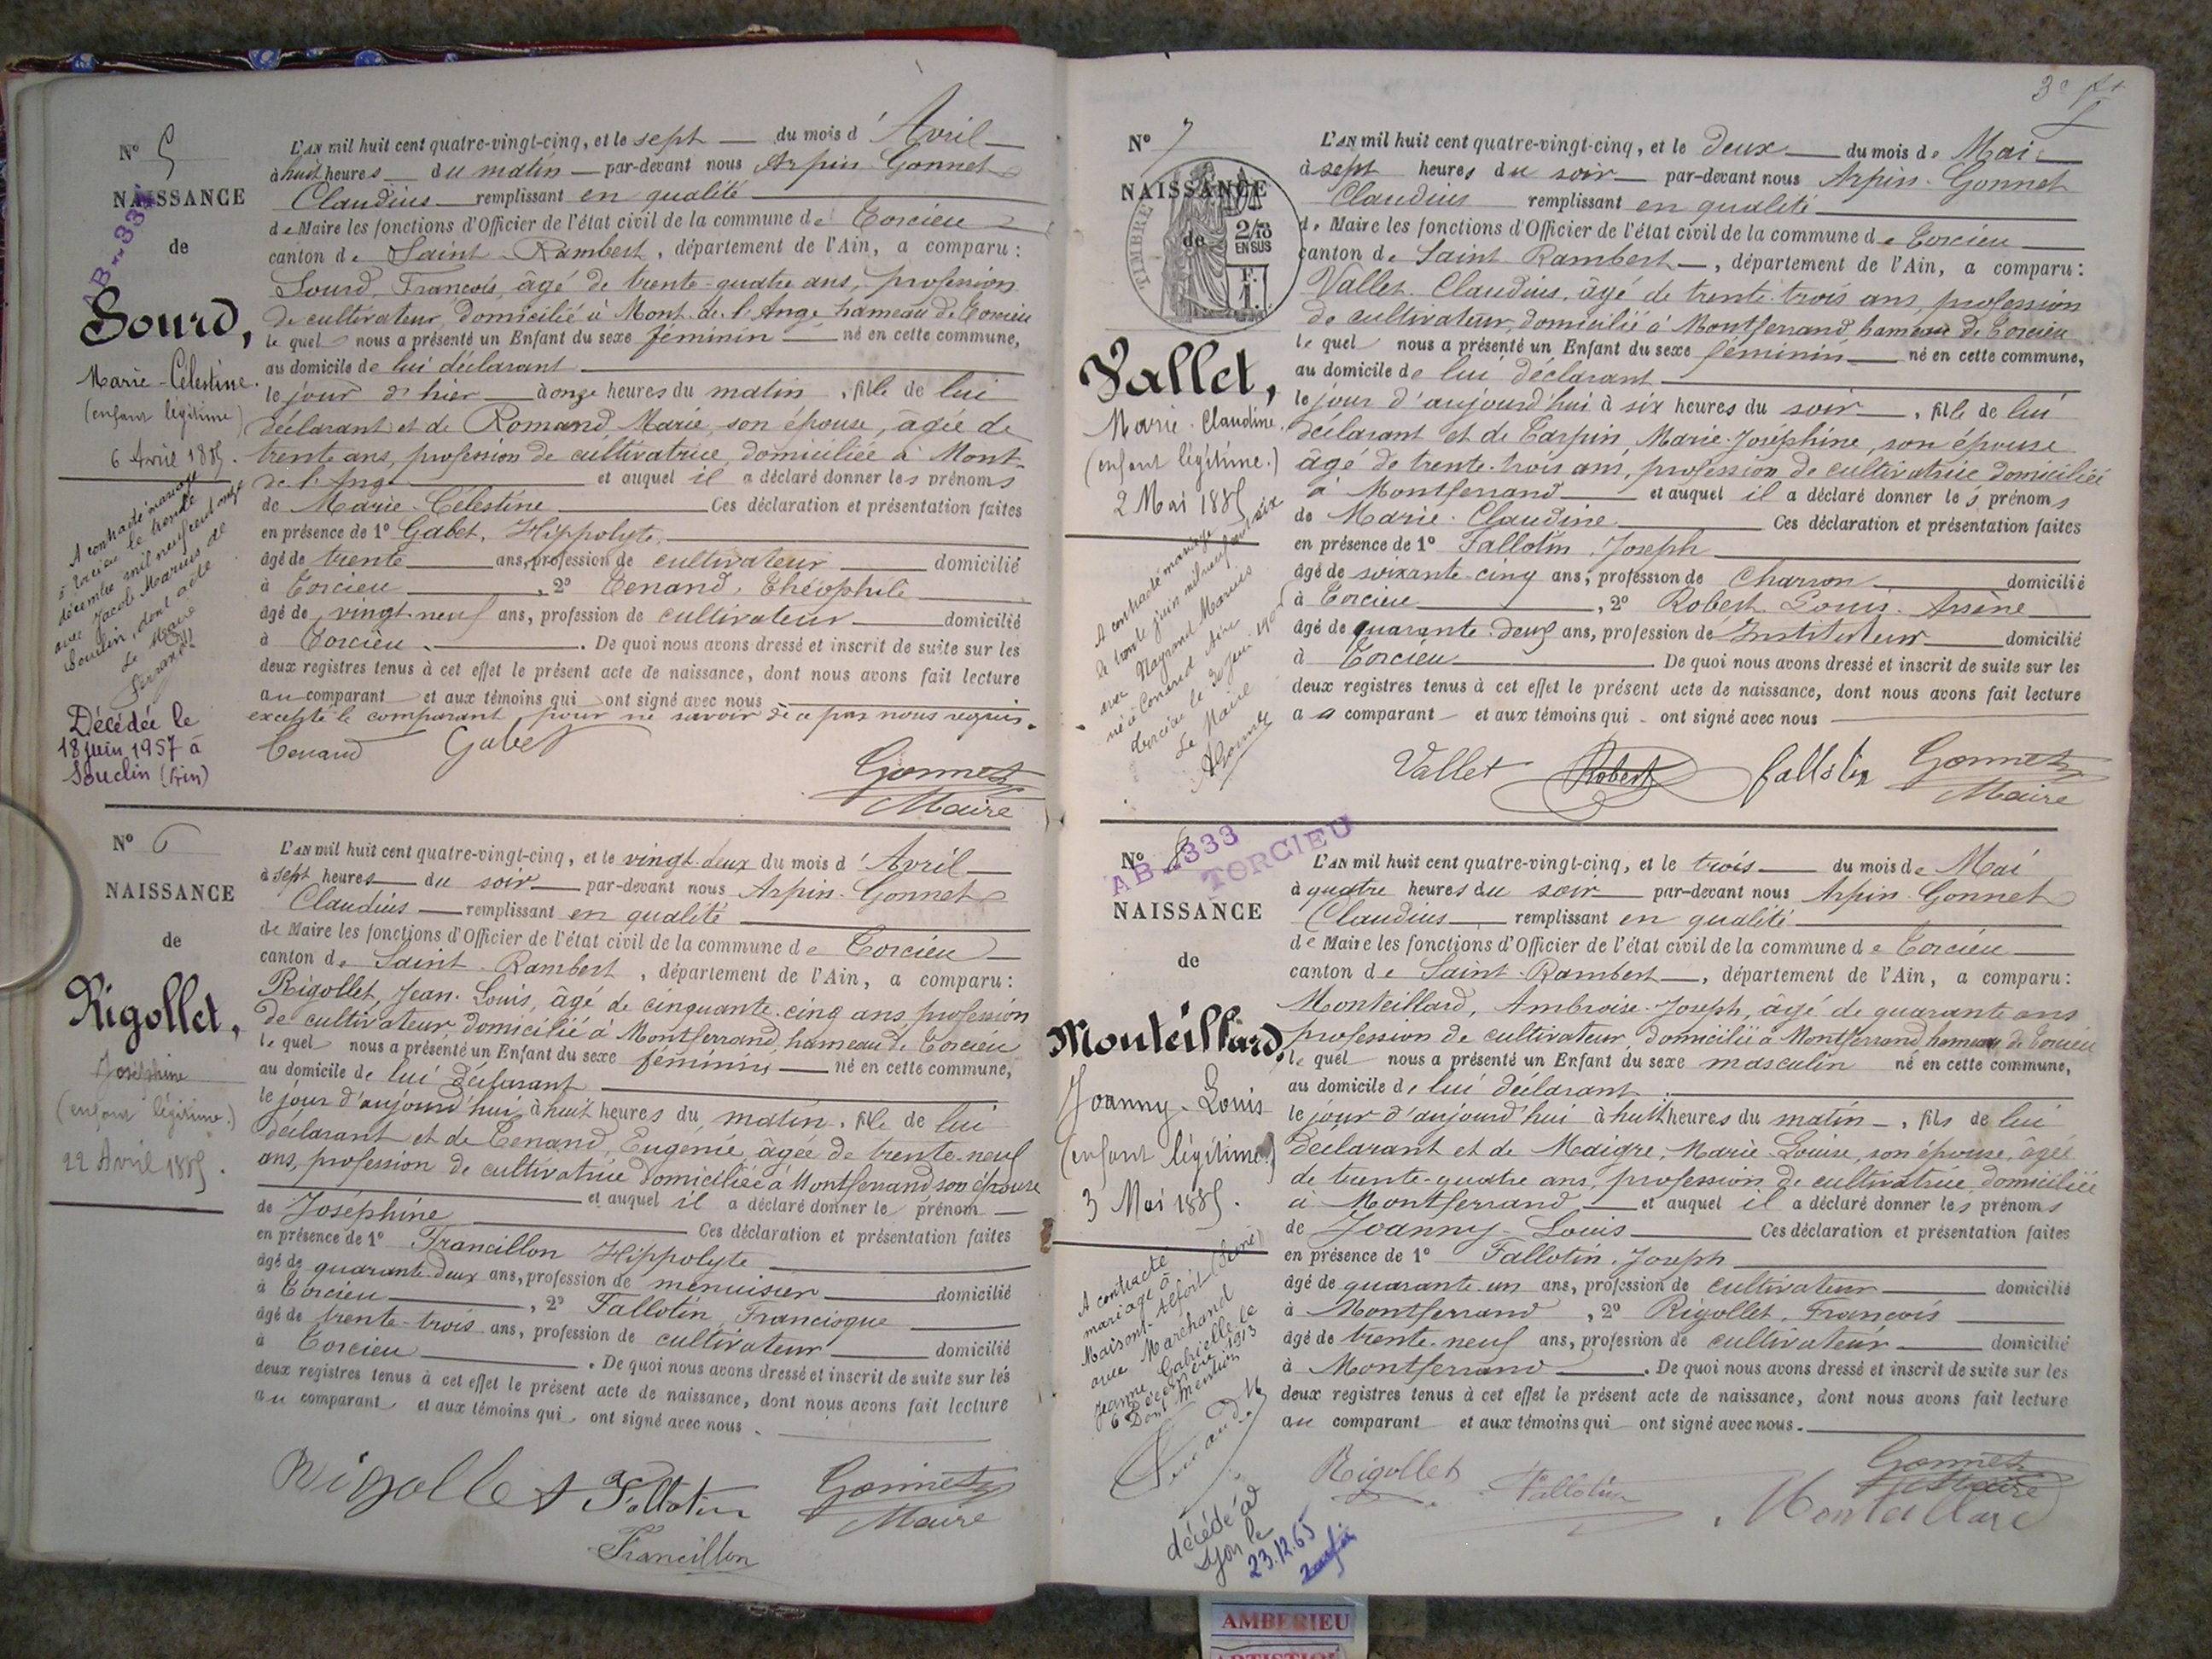 N° 5
NAISSANCE
de
AB--333
Sourd,
Marie-Célestine.
(enfant légitime)
6 Avril 1885.
A contracté mariage
à Torcieu le trente
décembre mil neuf cent onze
avec Jacob Marius de
Souclin, dont acte
Le Maire
Décédée le
18 juin 1957 à
Souclin (Ain)
L'AN mil huit cent quatre-vingt-cinq, et le sept du mois d'Avril
à huit heures du matin par-devant nous Arpin-Gonnet
Claudius remplissant en qualité
de Maire les fonctions d'Officier de l'état civil de la commune de Torcieu
canton de Saint-Rambert, département de l'Ain, a comparu :
Sourd, François, âgé de trente-quatre ans, profession
de cultivateur, domicilié à Mont-de-l'Ange, hameau de Torcieu
lequel nous a présenté un Enfant du sexe féminin né en cette commune,
au domicile de lui déclarant
le jour d'hier à onze heures du matin, fille de lui
déclarant et de Romand Marie, son épouse, âgée de
trente ans, profession de cultivatrice, domiciliée à Mont-
de-l'Ange et auquel il a déclaré donner les prénoms
de Marie-Célestine Ces déclaration et présentation faites
en présence de 1° Gabet, Hippolyte
âgé de trente ans, profession de cultivateur domicilié
à Torcieu, 2° Tenand, Théophile
âgé de vingt-neuf ans, profession de cultivateur domicilié
à Torcieu. De quoi nous avons dressé et inscrit de suite sur les
deux registres tenus à cet effet le présent acte de naissance, dont nous avons fait lecture
au comparant et aux témoins qui ont signé avec nous
excepté le comparant pour ne savoir de ce par nous requis.
Tenand Gabet
Gonnet
Maire
N° 6
NAISSANCE
de
Rigollet,
Joséphine
(enfant légitime.)
22 Avril 1885.
L'AN mil huit cent quatre-vingt-cinq, et le vingt-deux du mois d'Avril
à sept heures du soir par-devant nous Arpin-Gonnet
Claudius remplissant en qualité
de Maire les fonctions d'Officier de l'état civil de la commune de Torcieu
canton de Saint-Rambert, département de l'Ain, a comparu :
Rigollet, Jean-Louis, âgé de cinquante-cinq ans, profession
de cultivateur, domicilié à Montferrand, hameau de Torcieu
lequel nous a présenté un Enfant du sexe féminin, né en cette commune,
au domicile de lui déclarant
le jour d'aujourd'hui, à huit heures du matin, fille de lui
déclarant et de Tenand, Eugénie, âgée de trente-neuf
ans, profession de cultivatrice domiciliée à Montferrand son épouse
et auquel il a déclaré donner le prénom
de Joséphine Ces déclaration et présentation faites
en présence de 1° Francillon Hippolyte
âgé de quarante-deux ans, profession de menuisier domicilié
à Torcieu, 2° Fallotin, Francisque
âgé de trente-trois ans, profession de cultivateur domicilié
à Torcieu. De quoi nous avons dressé et inscrit de suite sur les
deux registres tenus à cet effet le présent acte de naissance, dont nous avons fait lecture
au comparant et aux témoins qui ont signé avec nous.
Rigollet Fallotin Gonnet
Maire
Francillon
3e ft
N° 7
NAISSANCE
de
TIMBRE
2/10
EN SUS
F.
1.
Vallet,
Marie-Claudine.
(enfant légitime.)
2 Mai 1885
A contracté mariage
le trente juin mil neuf cent six
avec Mayrand Marius
Torcieu le 30 juin
Le Maire
L'AN mil huit cent quatre-vingt-cinq, et le deux du mois de Mai
à sept heures du soir par-devant nous Arpin-Gonnet
Claudius remplissant en qualité
de Maire les fonctions d'Officier de l'état civil de la commune de Torcieu
canton de Saint Rambert, département de l'Ain, a comparu :
Vallet, Claudius, âgé de trente-trois ans, profession
de cultivateur, domicilié à Montferrand, hameau de Torcieu
lequel nous a présenté un Enfant du sexe féminin né en cette commune,
au domicile de lui déclarant
le jour d'aujourd'hui à six heures du soir, fille de lui
déclarant et de Tarpin, Marie-Joséphine, son épouse
âgé de trente-trois ans, profession de cultivatrice domiciliée
à Montferrand et auquel il a déclaré donner les prénoms
de Marie-Claudine. Ces déclaration et présentation faites
en présence de 1° Fallotin, Joseph
âgé de soixante-cinq ans, profession de Charron domicilié
à Torcieu, 2° Robert, Louis-Arsène
âgé de quarante-deux ans, profession de Instituteur domicilié
à Torcieu De quoi nous avons dressé et inscrit de suite sur les
deux registres tenus à cet effet le présent acte de naissance, dont nous avons fait lecture
au comparant et aux témoins qui ont signé avec nous
Vallet Robert fallotin Gonnet
Maire
N° 8
AB--333
TORCIEU
NAISSANCE
de
Monteillard,
Joanny-Louis
(enfant légitime.)
3 Mai 1885.
A contracté
mariage à
Maisons-Alfort (Seine)
avec Marchand
Jeanne Gabrielle le
6 Décembre 1913
Dont Mention
décédé à
Lyon le
23.12.65
L'AN mil huit cent quatre-vingt-cinq, et le trois du mois de Mai
à quatre heures du soir par-devant nous Arpin-Gonnet
Claudius remplissant en qualité
de Maire les fonctions d'Officier de l'état civil de la commune de Torcieu
canton de Saint-Rambert, département de l'Ain, a comparu :
Monteillard, Ambroise-Joseph, âgé de quarante ans
profession de cultivateur, domicilié à Montferrand hameau de Torcieu
lequel nous a présenté un Enfant du sexe masculin né en cette commune,
au domicile de lui déclarant
le jour d'aujourd'hui à huit heures du matin, fils de lui
déclarant et de Maigre, Marie-Louise, son épouse, âgée
de trente-quatre ans, profession de cultivatrice, domiciliée
à Montferrand et auquel il a déclaré donner les prénoms
de Joanny-Louis Ces déclaration et présentation faites
en présence de 1° Fallotin, Joseph
âgé de quarante-un ans, profession de cultivateur domicilié
à Montferrand, 2° Rigollet, François
âgé de trente-neuf ans, profession de cultivateur domicilié
à Montferrand. De quoi nous avons dressé et inscrit de suite sur les
deux registres tenus à cet effet le présent acte de naissance, dont nous avons fait lecture
au comparant et aux témoins qui ont signé avec nous.
Rigollet Fallotin Gonnet
Maire
Monteillard
AMBERIEU